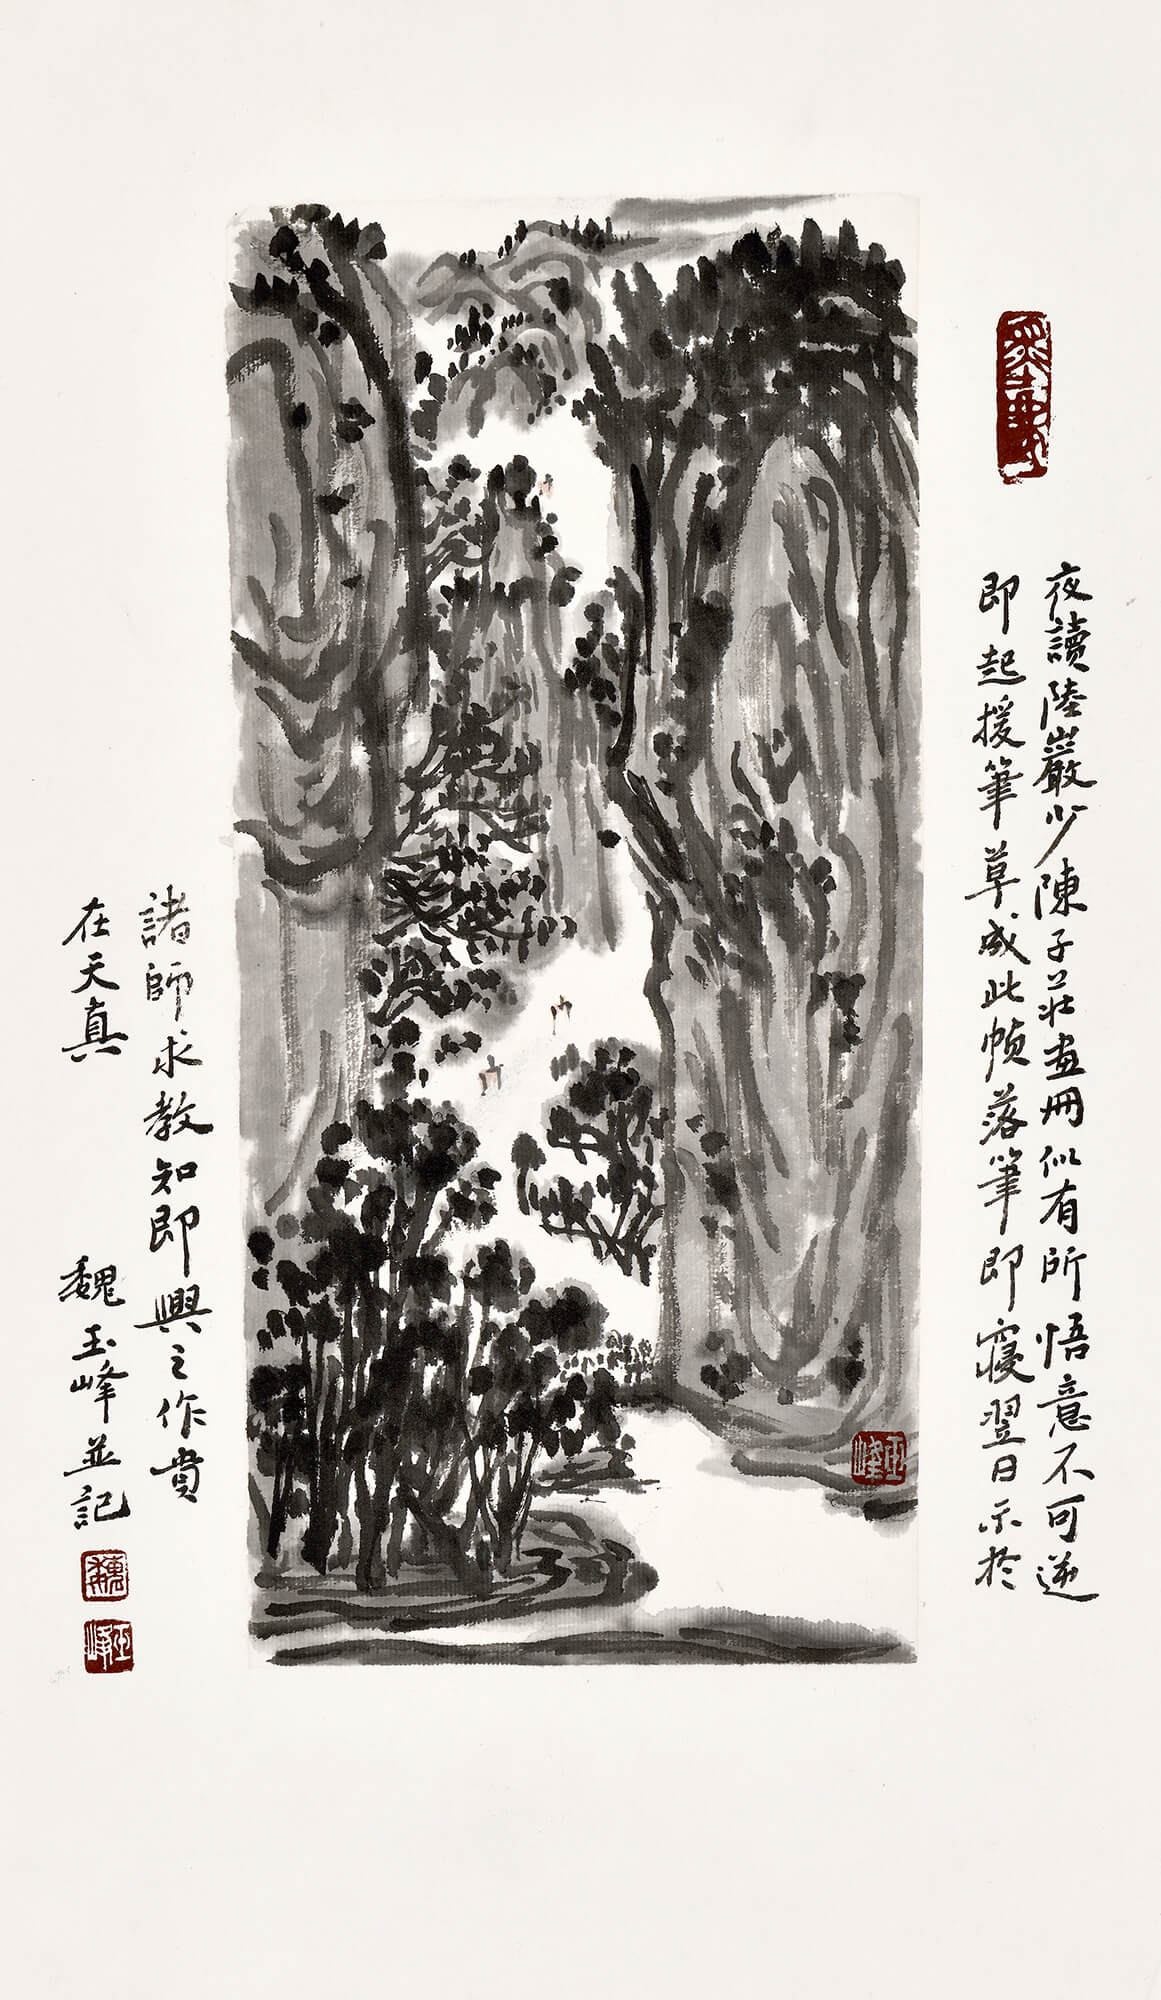 夜讀陸巖少陳子莊畫冊似有所悟意不可遏
即起援筆草成此幀落筆即寢翌日示於
諸師求教知即興之作貴
在天真
魏玉峰並記
玉峰
魏
玉峰